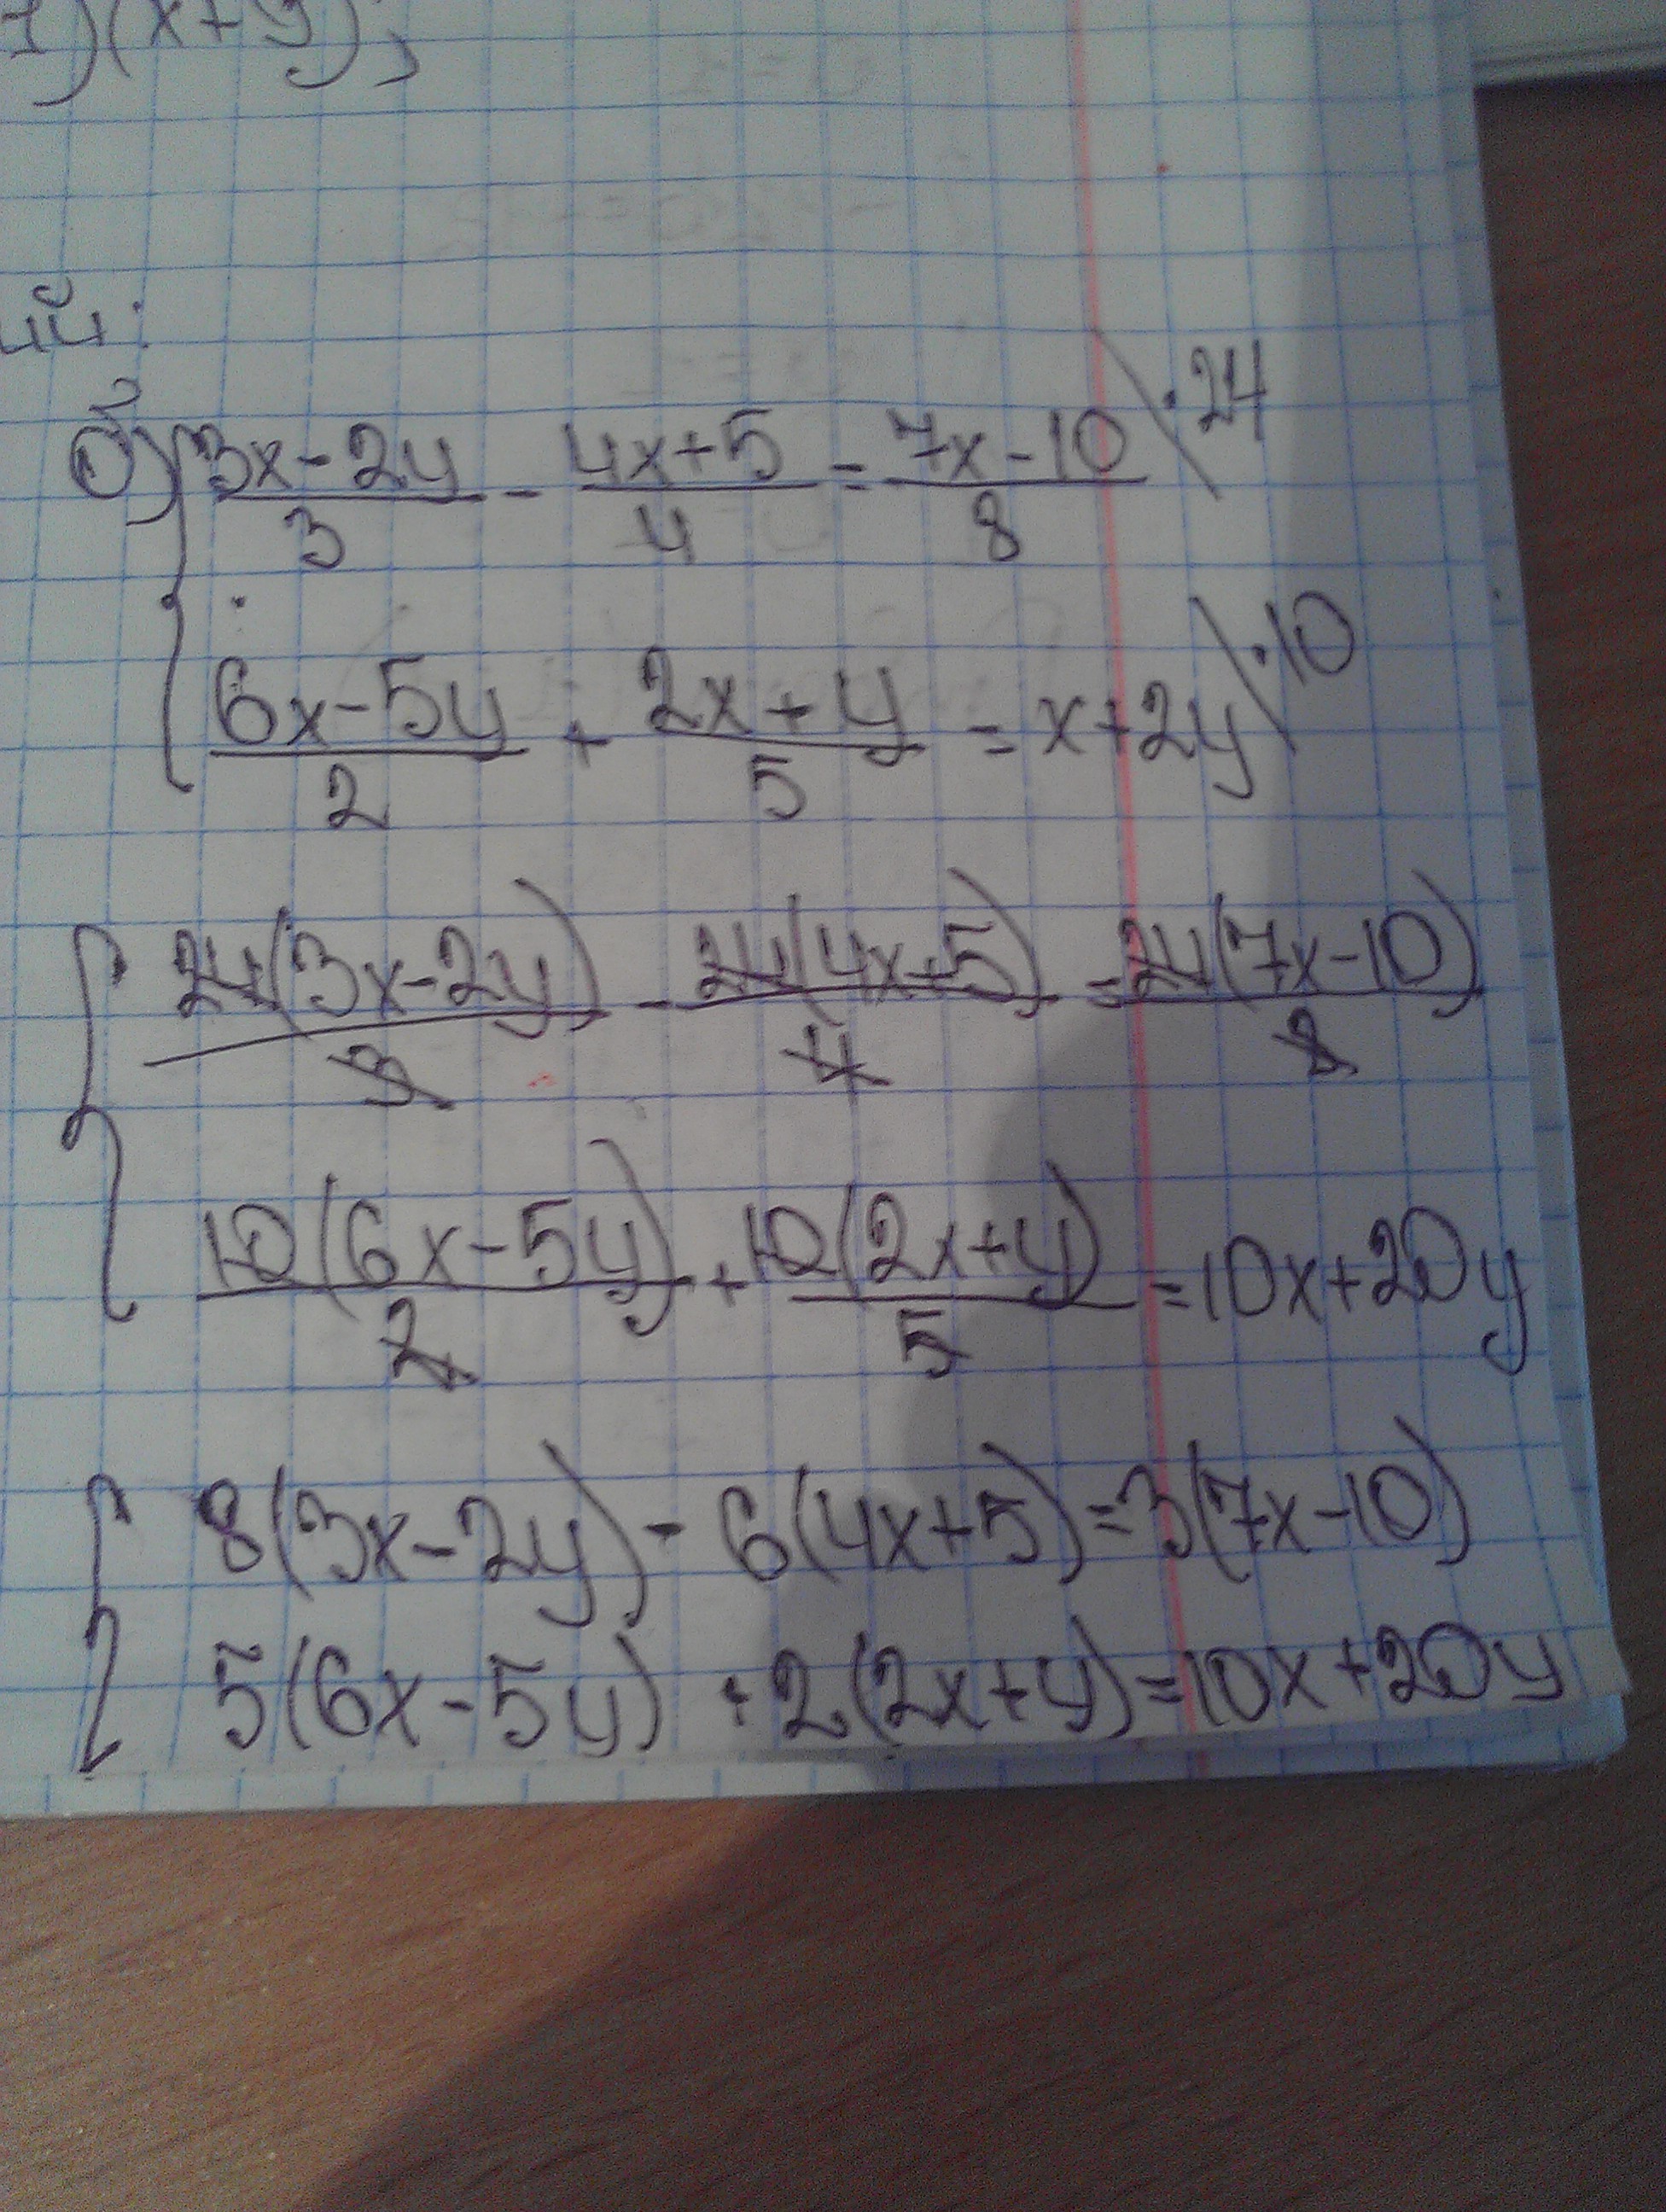 1)(x+y);
ний:
б) { (3x-2y)/3 - (4x+5)/4 = (7x-10)/8 \ ·24
(6x-5y)/2 + (2x+y)/5 = x+2y \ ·10
{ 24(3x-2y)/3 - 24(4x+5)/4 = 24(7x-10)/8
10(6x-5y)/2 + 10(2x+y)/5 = 10x+20y
{ 8(3x-2y) - 6(4x+5)=3(7x-10)
5(6x-5y) + 2(2x+y)=10x+20y